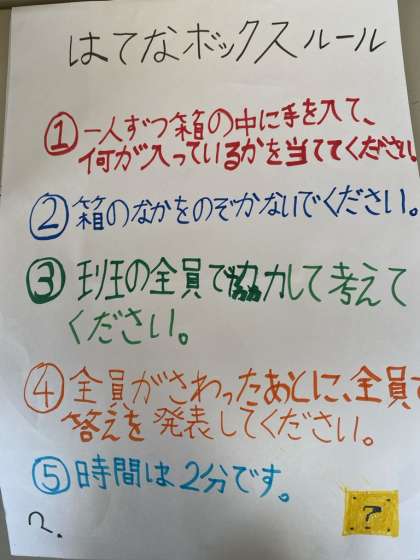 はてなボックスルール
① 一人ずつ箱の中に手を入て、
何が入っているかを当ててください
② 箱のなかをのぞかないでください。
③ 班の全員で協力して考えて
ください。
④ 全員がさわったあとに、全員で
答えを発表してください。
⑤ 時間は2分です。
?